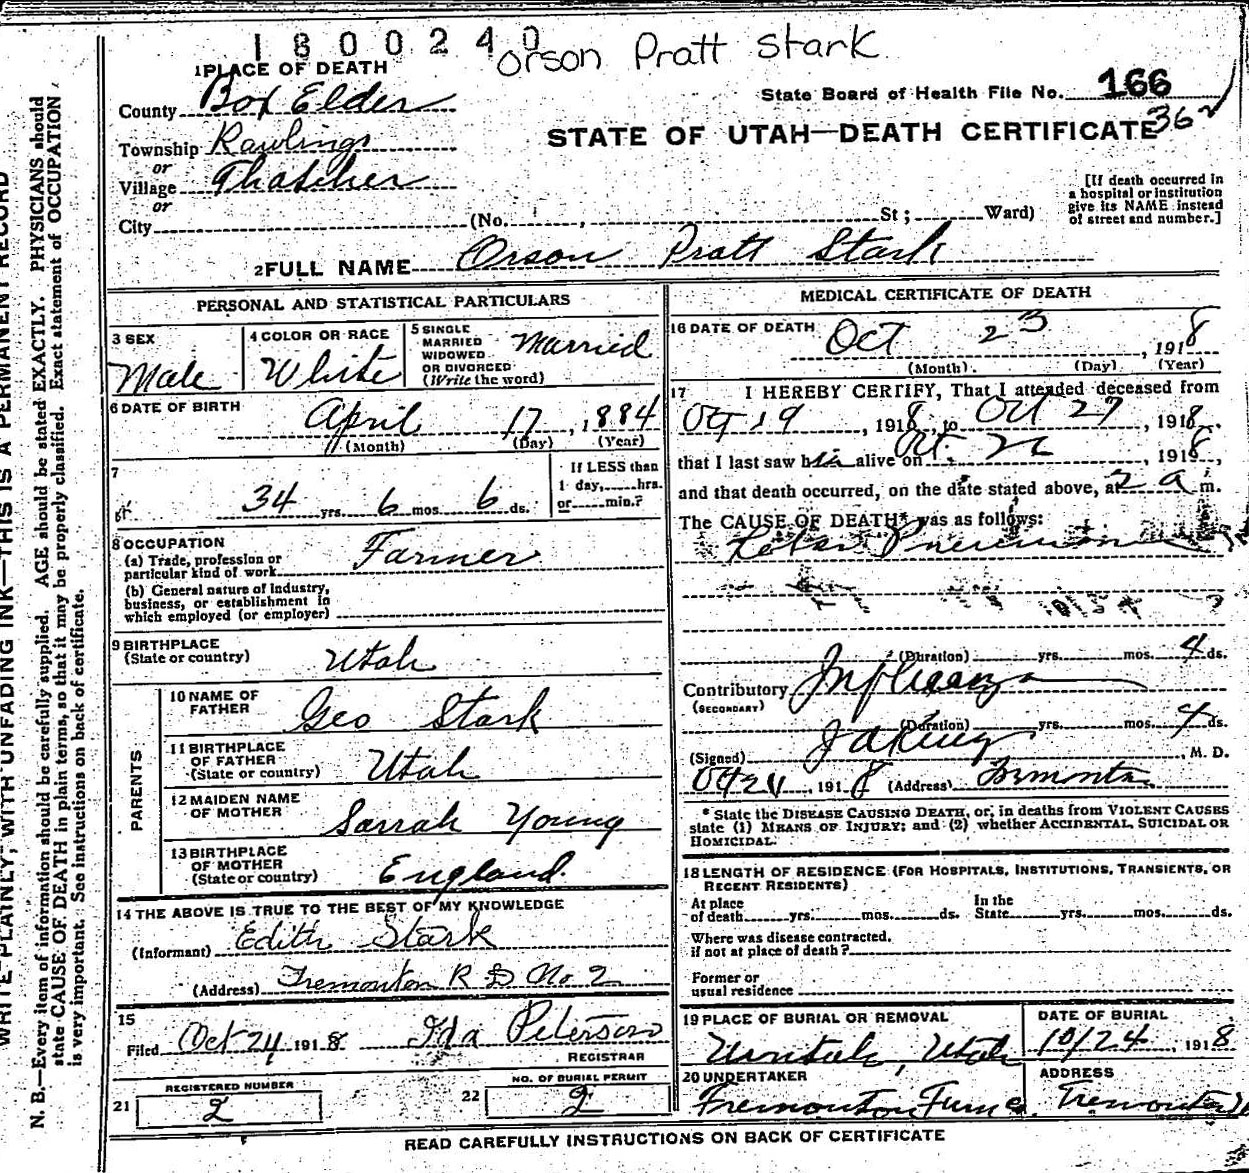 1800240
Orson Pratt Stark
1 PLACE OF DEATH
County Box Elder
State Board of Health File No. 166
362
Township Rawlings
STATE OF UTAH—DEATH CERTIFICATE
or
Village Thatcher
or
City (No. , St; Ward)
[If death occurred in
a hospital or institution
give its NAME instead
of street and number.]
2 FULL NAME Orson Pratt Stark
PERSONAL AND STATISTICAL PARTICULARS
3 SEX
Male
4 COLOR OR RACE
White
5 SINGLE
MARRIED
WIDOWED
OR DIVORCED
(Write the word)
Married
6 DATE OF BIRTH
April 17, 1884
(Month) (Day) (Year)
7
34 yrs. 6 mos. 6 ds.
If LESS than
1 day, hrs.
or min.?
8 OCCUPATION
(a) Trade, profession or
particular kind of work Farmer
(b) General nature of industry,
business, or establishment in
which employed (or employer)
9 BIRTHPLACE
(State or country) Utah
PARENTS
10 NAME OF
FATHER Geo Stark
11 BIRTHPLACE
OF FATHER
(State or country) Utah
12 MAIDEN NAME
OF MOTHER Sarrah Young
13 BIRTHPLACE
OF MOTHER
(State or country) England
14 THE ABOVE IS TRUE TO THE BEST OF MY KNOWLEDGE
(Informant) Edith Stark
(Address) Tremonton R D No. 2
15
Filed Oct 24 1918 Ida Peterson
REGISTRAR
REGISTERED NUMBER
21 2
NO. OF BURIAL PERMIT
22 2
MEDICAL CERTIFICATE OF DEATH
16 DATE OF DEATH Oct 23, 1918
(Month) (Day) (Year)
17 I HEREBY CERTIFY, That I attended deceased from
Oct 19, 1918, to Oct, 1918,
that I last saw him alive on Oct., 1918,
and that death occurred, on the date stated above, at 2 a m.
The CAUSE OF DEATH* was as follows:
Lobar Pneumonia
(Duration) yrs. mos. 4 ds.
Contributory Influenza
(SECONDARY)
(Duration) yrs. mos. 4 ds.
(Signed) M. D.
Oct, 1918 (Address) Tremonton
* State the DISEASE CAUSING DEATH, or, in deaths from VIOLENT CAUSES
state (1) MEANS OF INJURY; and (2) whether ACCIDENTAL, SUICIDAL OR
HOMICIDAL.
18 LENGTH OF RESIDENCE (FOR HOSPITALS, INSTITUTIONS, TRANSIENTS, OR
RECENT RESIDENTS)
At place
of death yrs. mos. ds.
In the
State yrs. mos. ds.
Where was disease contracted,
if not at place of death?
Former or
usual residence
19 PLACE OF BURIAL OR REMOVAL
Utah
DATE OF BURIAL
10/24, 1918
20 UNDERTAKER
Tremonton Furn Co.
ADDRESS
Tremonton
READ CAREFULLY INSTRUCTIONS ON BACK OF CERTIFICATE
WRITE PLAINLY, WITH UNFADING INK—THIS IS A PERMANENT RECORD
N. B.—Every item of information should be carefully supplied. AGE should be stated EXACTLY. PHYSICIANS should
state CAUSE OF DEATH in plain terms, so that it may be properly classified. Exact statement of OCCUPATION
is very important. See instructions on back of certificate.